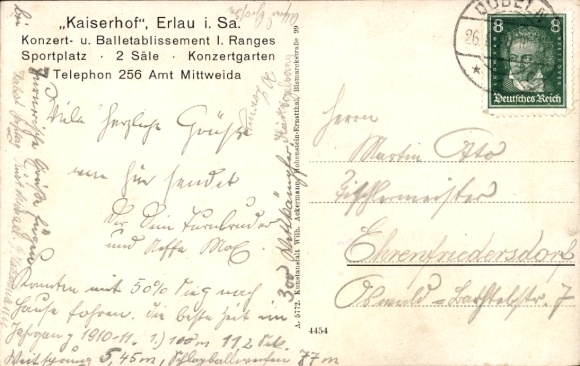 „Kaiserhof", Erlau i. Sa.
Konzert- u. Balletablissement I. Ranges
Sportplatz · 2 Säle · Konzertgarten
Telephon 256 Amt Mittweida
DÖBELN
26.
8 8
Deutsches Reich
Viele herzliche Grüße
von hier sendet
Dir Dein Turnbruder
und Neffe Max.
Konnten mit 50% Sieg nach
Hause fahren. Die beste Zeit im
Jahrgang 1910-11. 1.) 100 m 11,2 Sek.
Weitsprung 5,45 m, Schlagballwerfen 77 m
300 Wettkämpfer
Turnerische Grüße
A. 5772. Kunstanstalt Wilh. Ackermann, Hohenstein-Ernstthal, Bismarckstraße 29
4454
Herrn
Martin
Tischlermeister
Ehrenfriedersdorf
Oswald-Barthelstr. 7